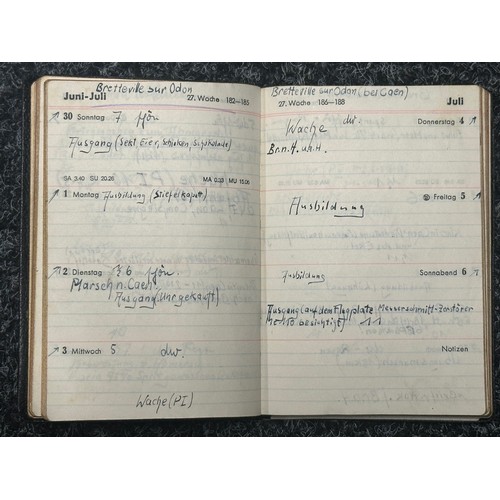 Bretteville sur Odon
Juni-Juli 27. Woche 182—185
30 Sonntag 7
Ausgang (Sekt, Eier, Schinken, Schokolade)
SA 3.40 SU 20.26 MA 0.33 MU 15.06
1 Montag Ausbildung (Stiefel kaputt)
2 Dienstag 36
Marsch n. Caen
Ausgang (Uhr gekauft)
3 Mittwoch 5 dw.
Wache (PI)
Bretteville sur Odon (bei Caen)
27. Woche 186—188 Juli
Wache dw. Donnerstag 4
Br. n. H. u. H.
Freitag 5
Ausbildung
Ausbildung Sonnabend 6
Ausgang (auf dem Flugplatz: Messerschmitt-Zerstörer
110 besichtigt)
Notizen